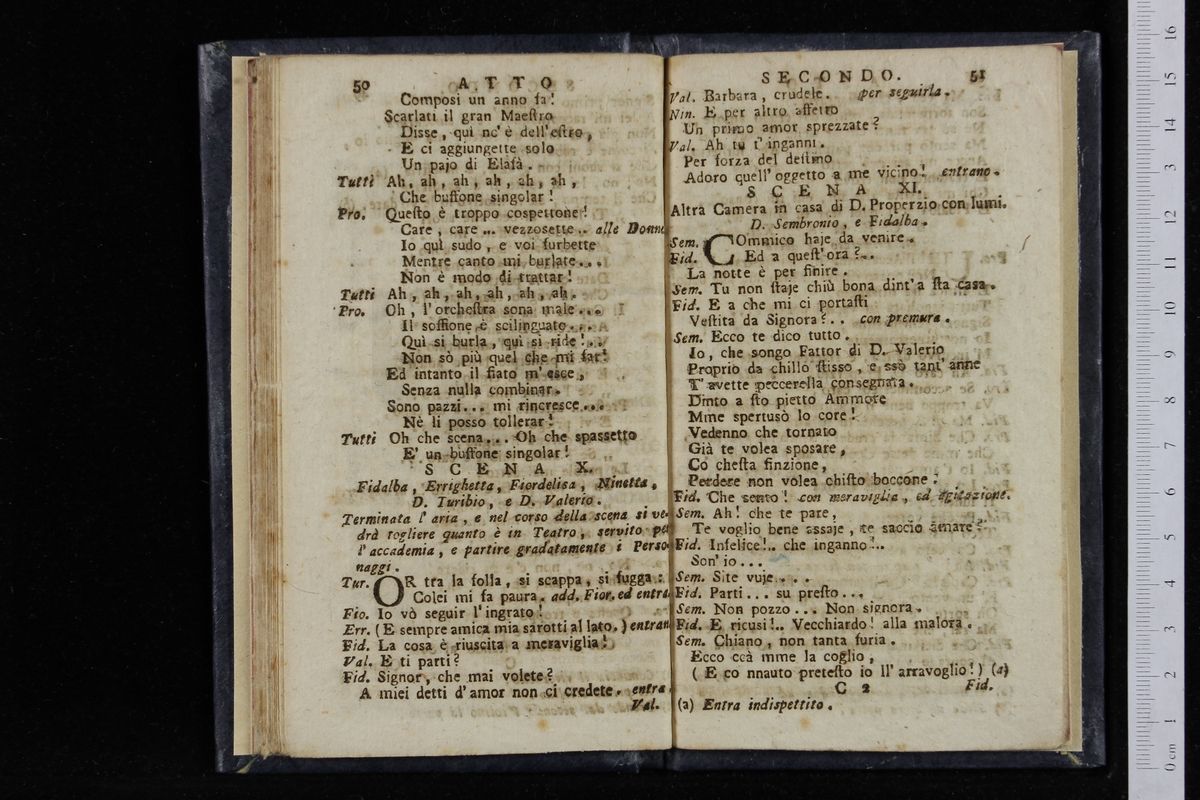 50 ATTO
Composi un anno fa!
Scarlati il gran Maeſtro
Diſſe, quì nc'è dell'eſtro,
E ci aggiungette ſolo
Un pajo di Elafà.
Tutti Ah, ah, ah, ah, ah, ah,
Che buffone singolar!
Pro. Queſto è troppo coſpettone!
Care, care ... vezzosette .. alle Donne
Io quì sudo, e voi furbette
Mentre canto mi burlate...
Non è modo di trattar!
Tutti Ah, ah, ah, ah, ah, ah.
Pro. Oh, l'orcheſtra sona male...
Il soffione è scilinguato...
Quì si burla, quì si ride!..
Non sò più quel che mi far!
Ed intanto il fiato m'esce,
Senza nulla combinar.
Sono pazzi... mi rincresce...
Nè li posso tollerar!
Tutti Oh che scena... Oh che spassetto
E' un buffone singolar!
SCENA X.
Fidalba, Errighetta, Fiordelisa, Ninetta,
D. Turibio, e D. Valerio.
Terminata l'aria, e nel corso della scena si ve-
drà togliere quanto è in Teatro, servito per
l'accademia, e partire gradatamente i Perso-
naggi.
Tur. OR tra la folla, si scappa, si fugga:
Colei mi fa paura. add. Fior. ed entra
Fio. Io vò seguir l'ingrato!
Err. (E sempre amica mia sarotti al lato.) entran
Fid. La cosa è riuscita a meraviglia!
Val. E ti parti?
Fid. Signor, che mai volete?
A miei detti d'amor non ci credete. entra.
Val.
SECONDO. 51
Val. Barbara, crudele. per seguirla.
Nin. E per altro affetto
Un primo amor sprezzate?
Val. Ah tu t'inganni.
Per forza del deſtino
Adoro quell'oggetto a me vicino! entrano.
SCENA XI.
Altra Camera in casa di D. Properzio con lumi.
D. Sembronio, e Fidalba.
Sem. COmmico haje da venire.
Fid. Ed a queſt'ora?..
La notte è per finire.
Sem. Tu non ſtaje chiù bona dint'a ſta casa.
Fid. E a che mi ci portaſti
Veſtita da Signora?.. con premura.
Sem. Ecco te dico tutto.
Io, che songo Fattor di D. Valerio
Proprio da chillo ſtisso, e ssò tant'anne
T'avette peccerella consegnata.
Dinto a ſto pietto Ammore
Mme spertusò lo core!
Vedenno che tornato
Già te volea sposare,
Co cheſta finzione,
Perdere non volea chiſto boccone.
Fid. Che sento! con meraviglia, ed agitazione.
Sem. Ah! che te pare,
Te voglio bene assaje, te saccio amare?
Fid. Infelice!.. che inganno!..
Son'io...
Sem. Site vuje....
Fid. Parti... su preſto...
Sem. Non pozzo... Non signora.
Fid. E ricusi!.. Vecchiardo! alla malora.
Sem. Chiano, non tanta furia.
Ecco ccà mme la coglio,
(E co nnauto preteſto io ll'arravoglio!) (a)
C 2 Fid.
(a) Entra indispettito.